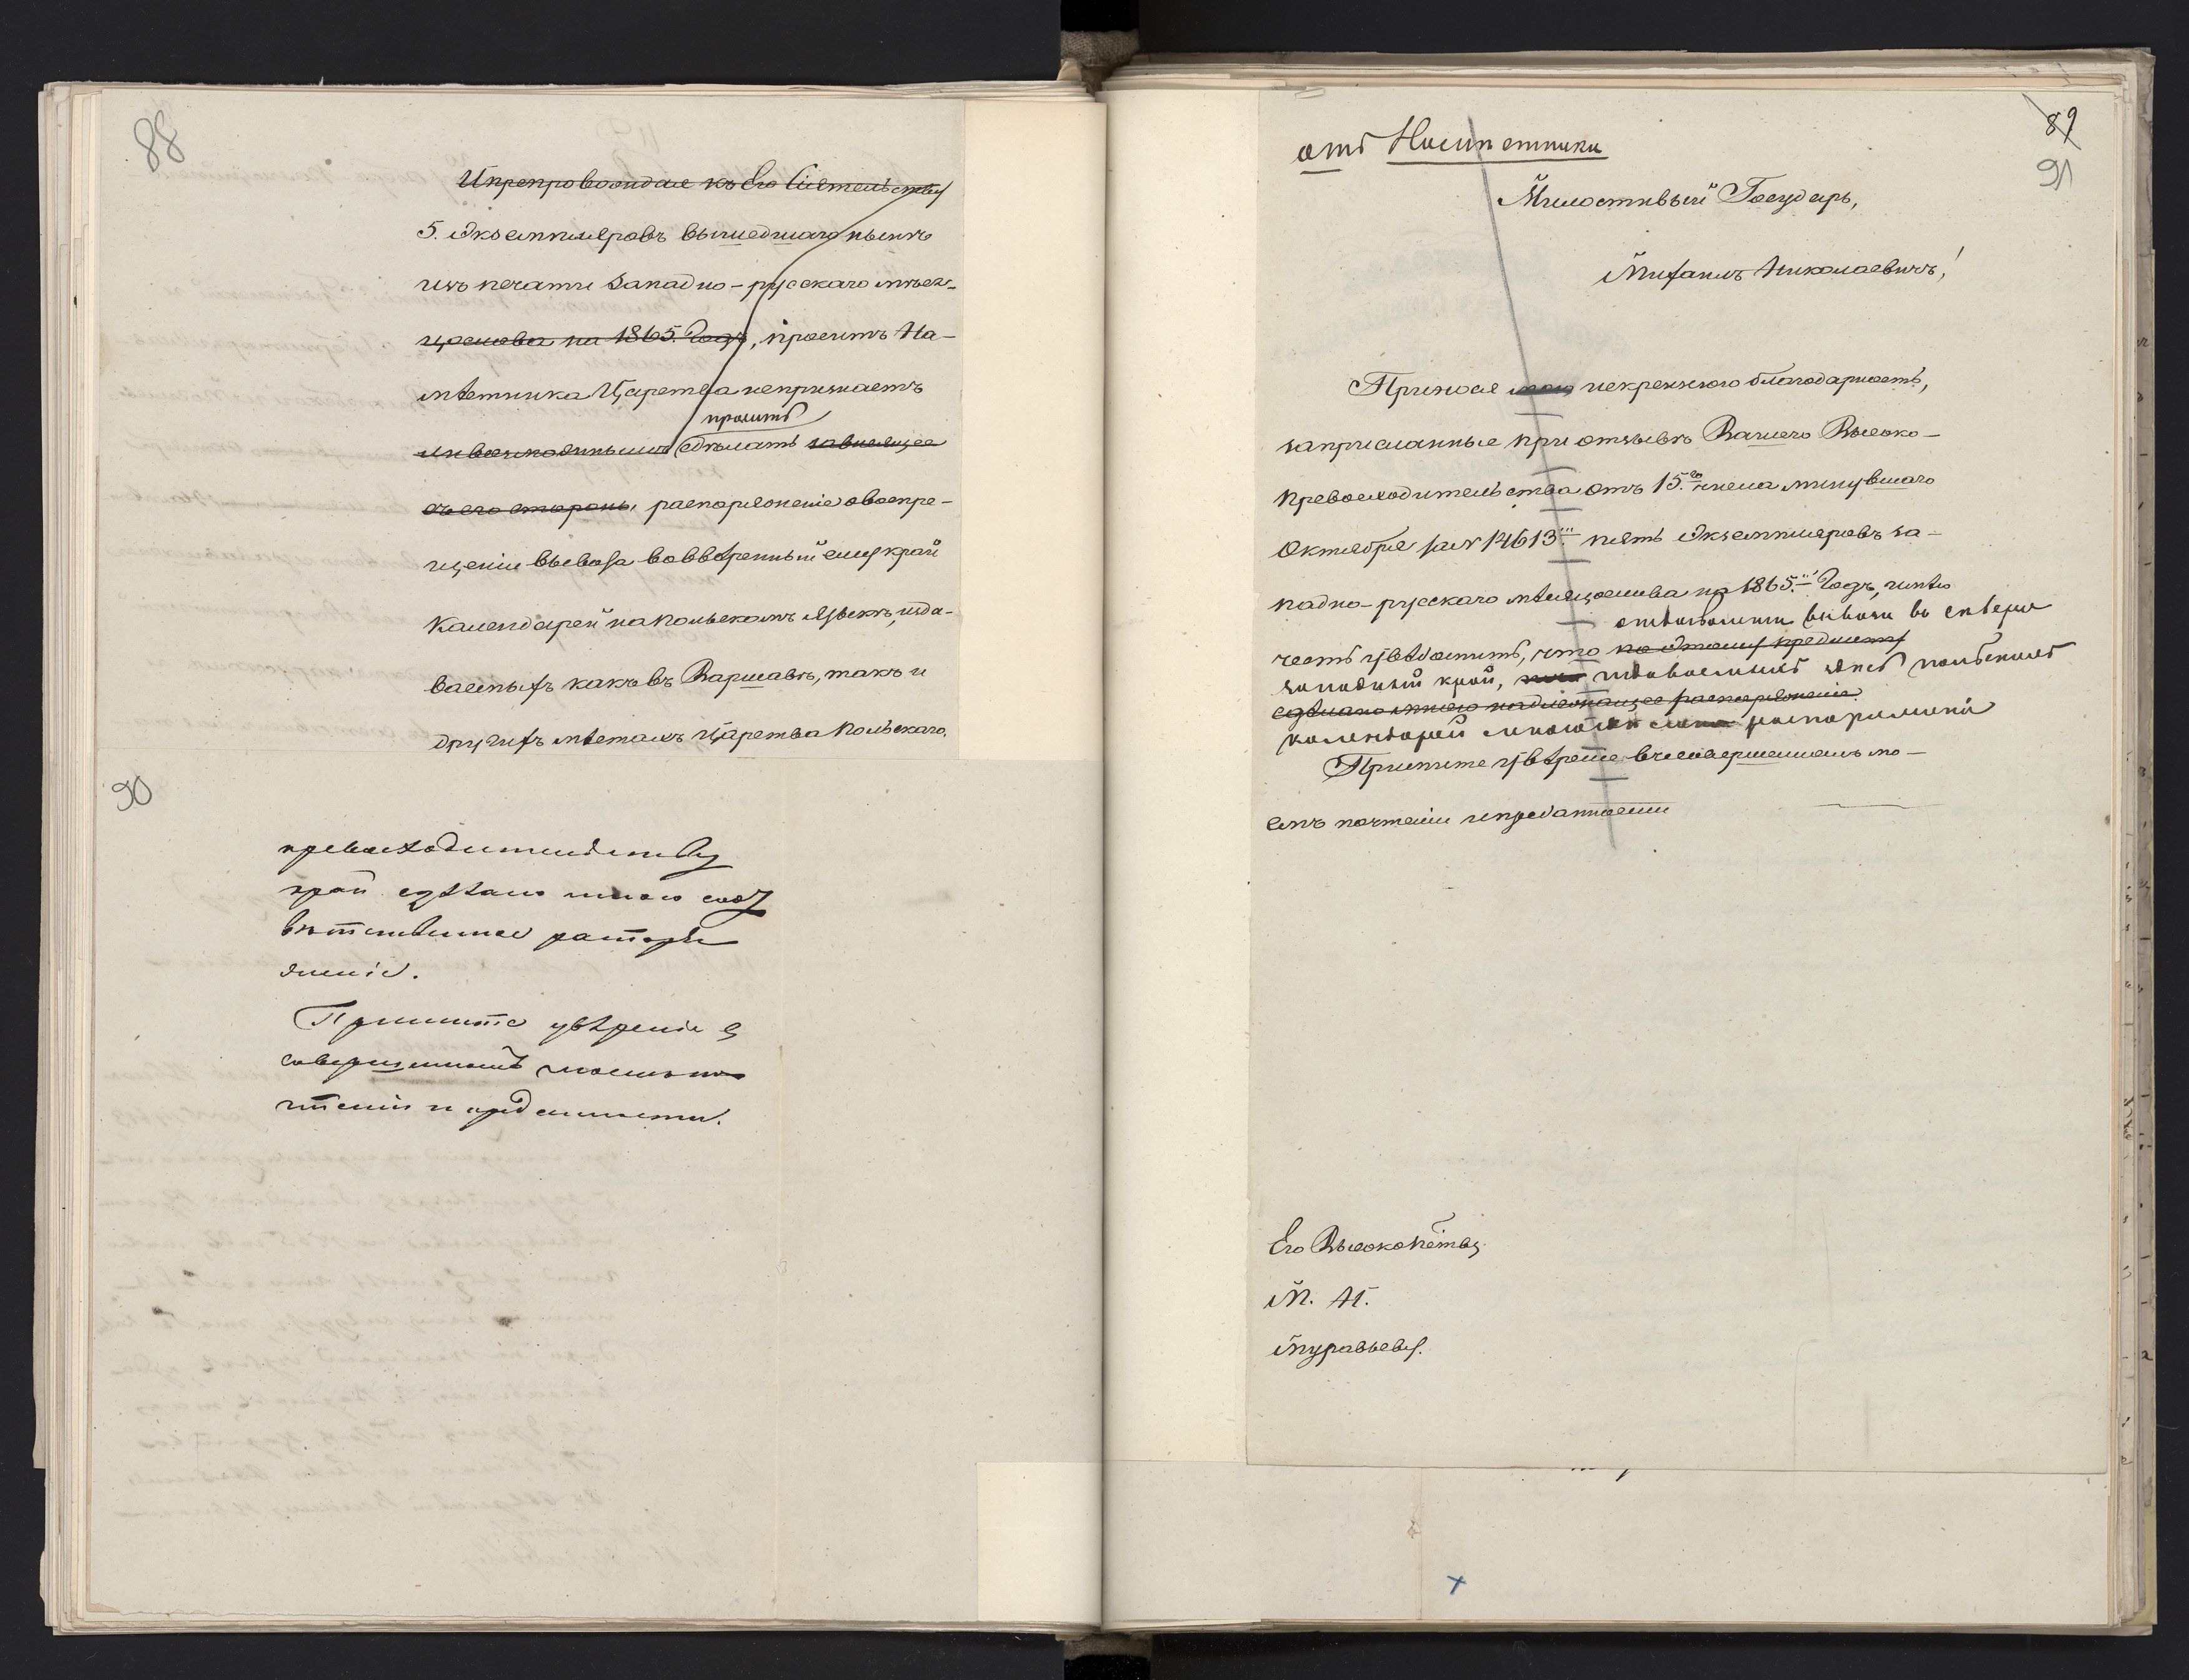 88
И препровождая къ Его Сіятельству
5. Экземпляровъ вышедшаго нынѣ
изъ печати Западно-русскаго мѣся-
цеслова на 1865. Годъ, проситъ На-
мѣстника Царства непризнаетъ
ли возможнымъ сдѣлать зависящее
проситъ
съ его стороны, распоряженіе о воспре-
щеніи вывоза во ввѣренный ему край
Календарей на польскомъ языкѣ, изда-
ваемыхъ какъ въ Варшавѣ, такъ и
другихъ мѣстахъ Царства Польскаго.
90
превосходительству
край сдѣлано мною соот
вѣтственное распоря
женіе.
Примите увѣреніе въ
совершенномъ моемъ по
чтеніи и преданности.
89
91
отъ Намѣстника
Милостивый Государь,
Михаилъ Николаевичъ!
Принося мою искреннюю благодарность,
за присланные при отзывѣ Вашего Высоко-
превосходительства отъ 15.го числа минувшаго
Октября за № 14613. пять Экземпляровъ за-
падно-русскаго мѣсяцеслова на 1865.й Годъ, имѣю
относительно вывоза въ сѣверо
честь увѣдомить, что по этому предмету
западный край, издаваемыхъ польскихъ
сдѣлано мною надлежащее распоряженіе.
календарей мною распоряженіе
Примите увѣреніе въ совершенномъ мо-
емъ почтеніи и преданности
Его Высокопр-ству
М. Н.
Муравьеву.